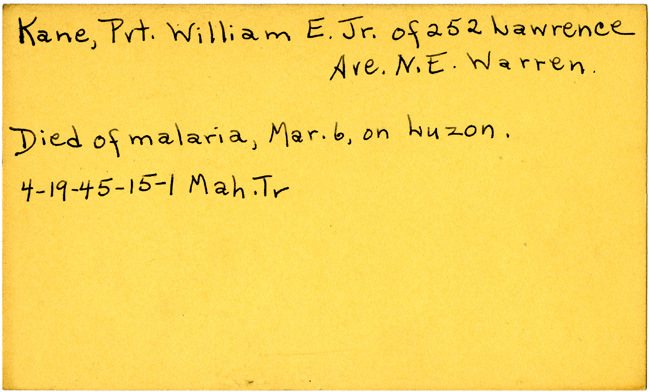 Kane, Pvt. William E. Jr. of 252 Lawrence
Ave. N.E. Warren.
Died of malaria, Mar. 6, on Luzon.
4-19-45-15-1 Mah. Tr